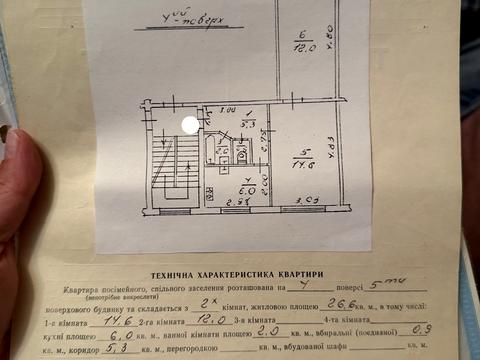 4ий поверх
6
12.0
4.80
3.00
1
5.3
2.75
5
14.6
4.83
4
6.0
2.00
3.03
ТЕХНІЧНА ХАРАКТЕРИСТИКА КВАРТИРИ
Квартира посімейного, спільного заселення розташована на 4 поверсі 5ти
(непотрібне викреслити)
поверхового будинку та складається з 2х кімнат, житловою площею 26,6 кв. м., в тому числі:
1-а кімната 14,6 2-га кімната 12,0 3-я кімната 4-та кімната
кухні площею 6,0 кв. м., ванної кімнати площею 2.0 кв. м., вбиральні (поєднаної) 0.9
кв. м., коридор 5,3 кв. м., перегородкою кв. м., вбудованої шафи кв. м.